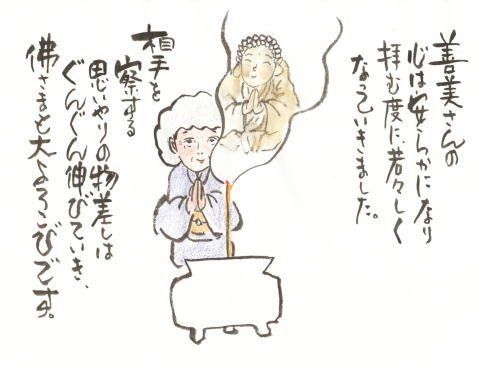 善美さんの
心は安らかになり
拝む度に、若々しく
なっていきました。
相手を
察する
思いやりの物差しは
ぐんぐん伸びていき、
佛さまも大よろこびです。